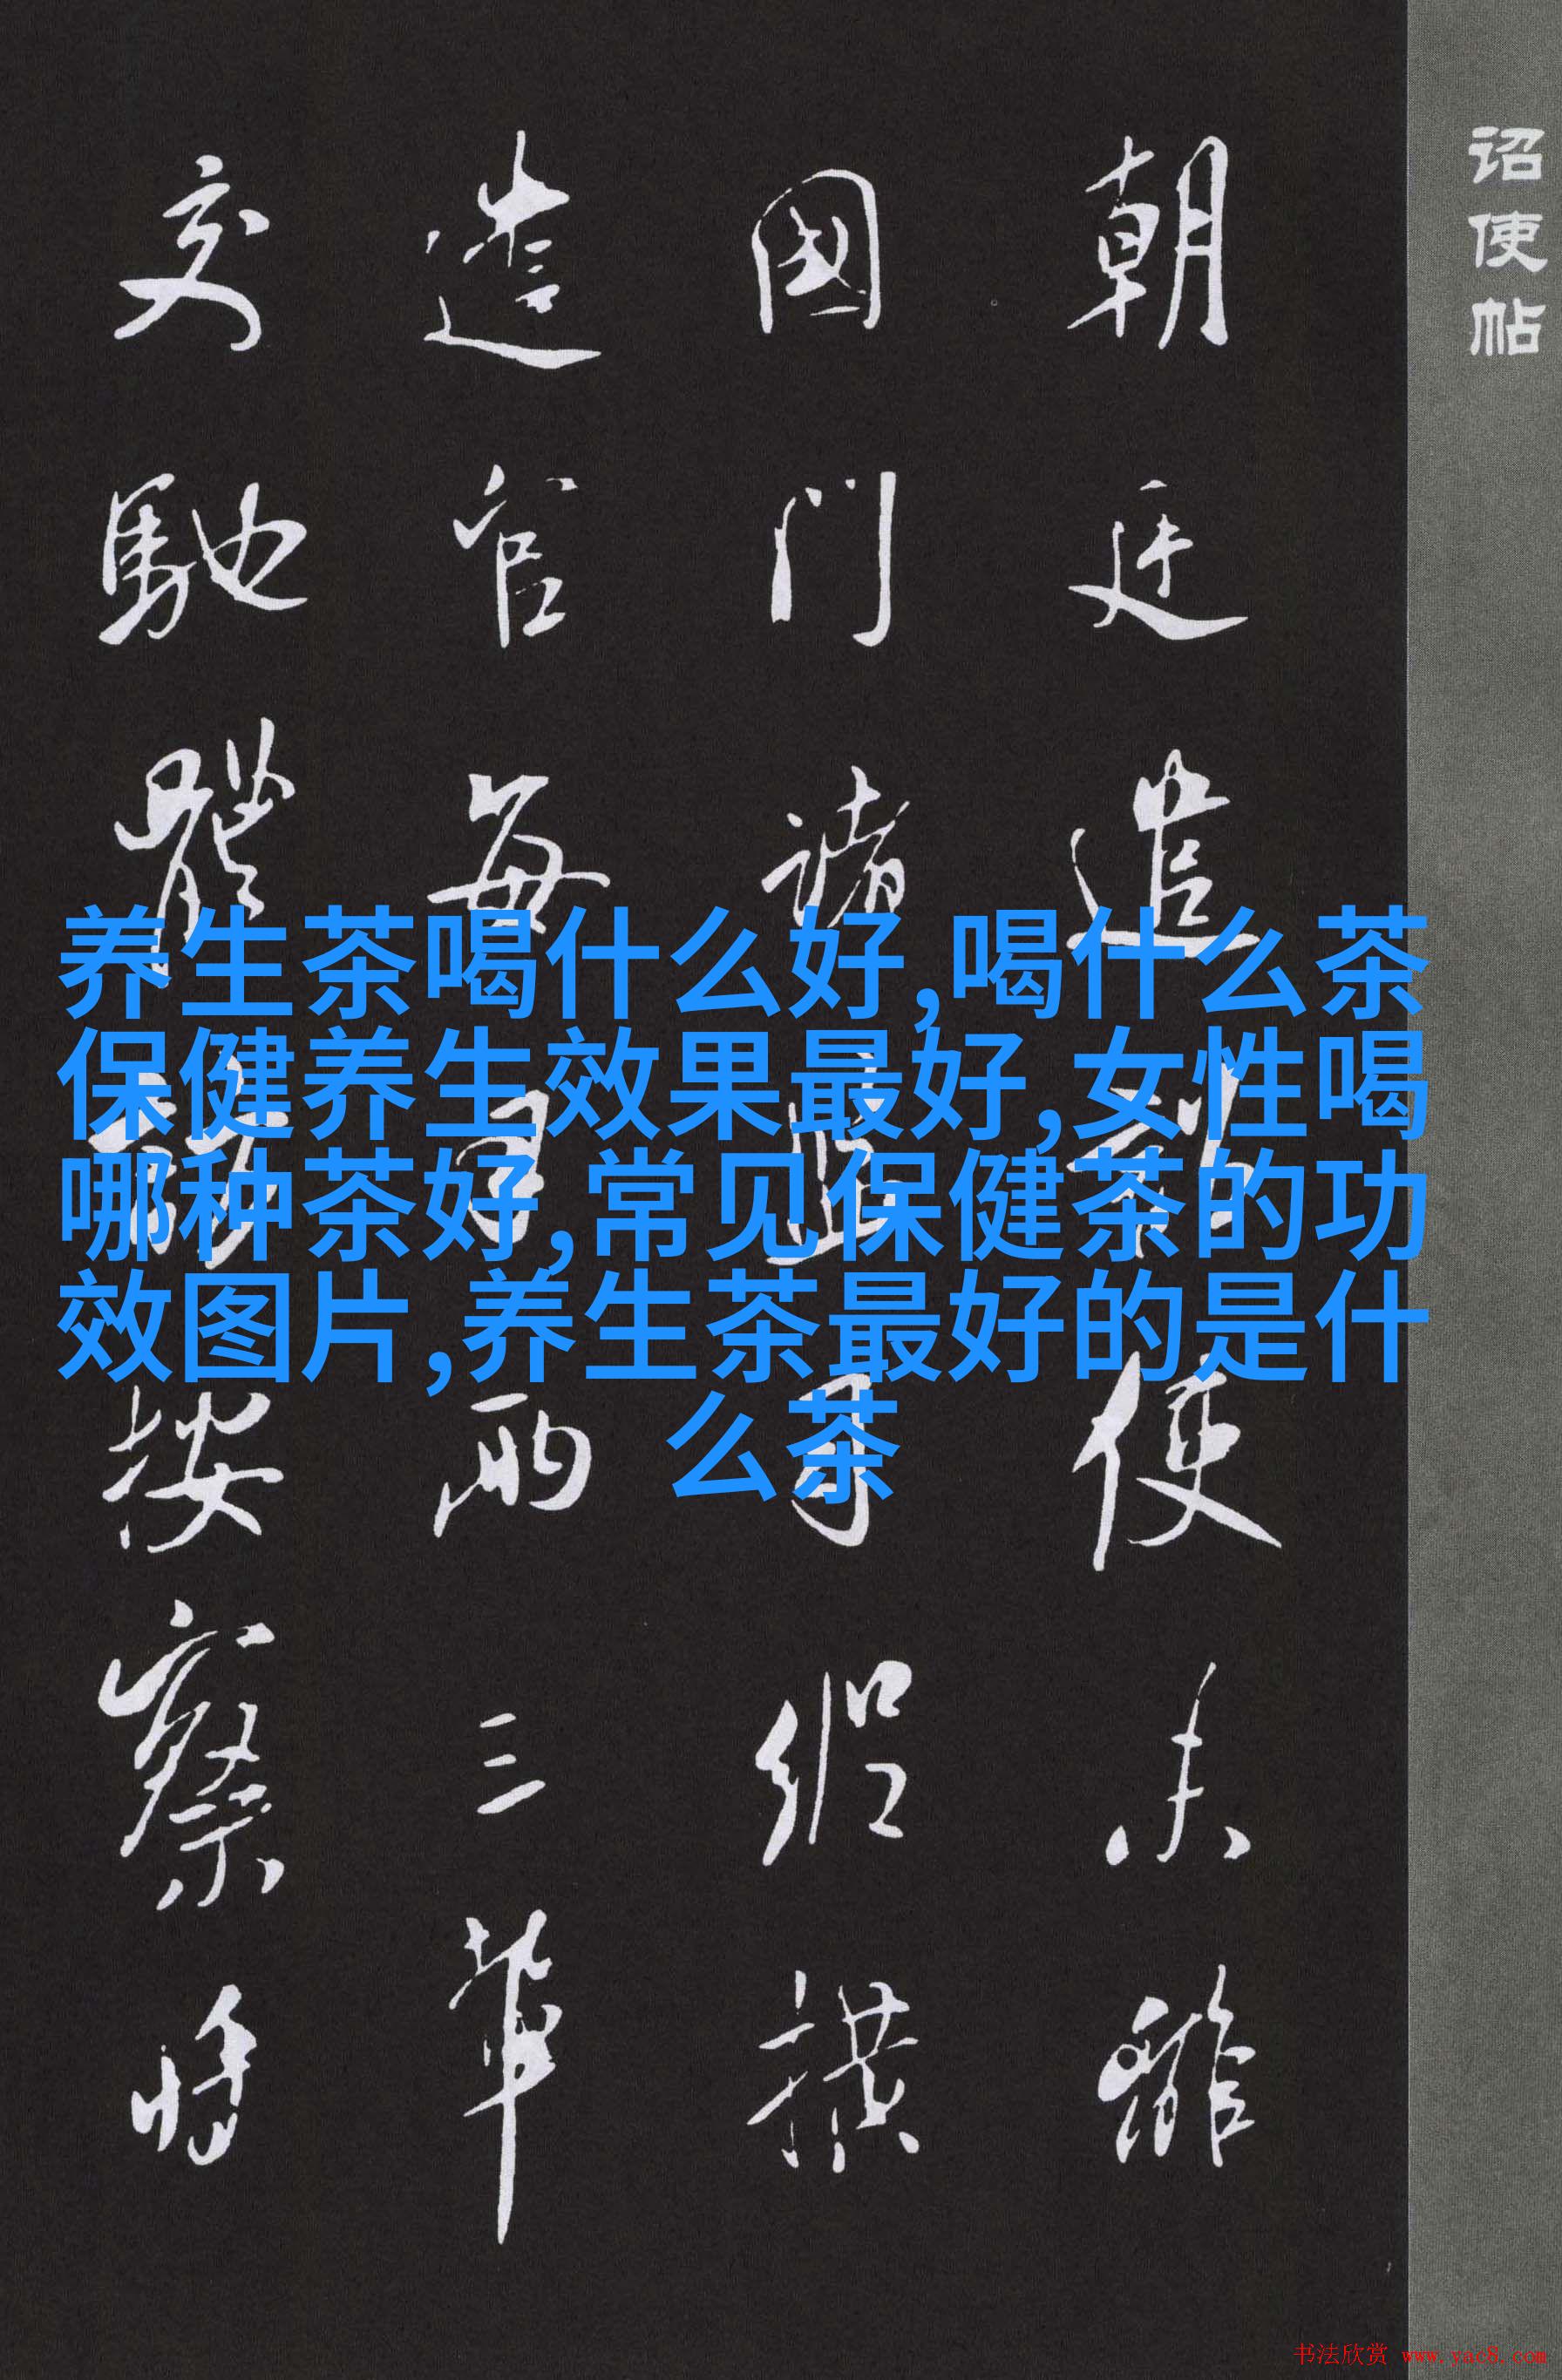 诏使帖
朝廷遣
使未
國門诸
纵横
遣官每
两三辈
交馳
按察
将
养生茶喝什么好,喝什么茶
保健养生效果最好,女性喝
哪种茶好,常见保健茶的功
效图片,养生茶最好的是什
么茶
书法欣赏 www.yac8.com